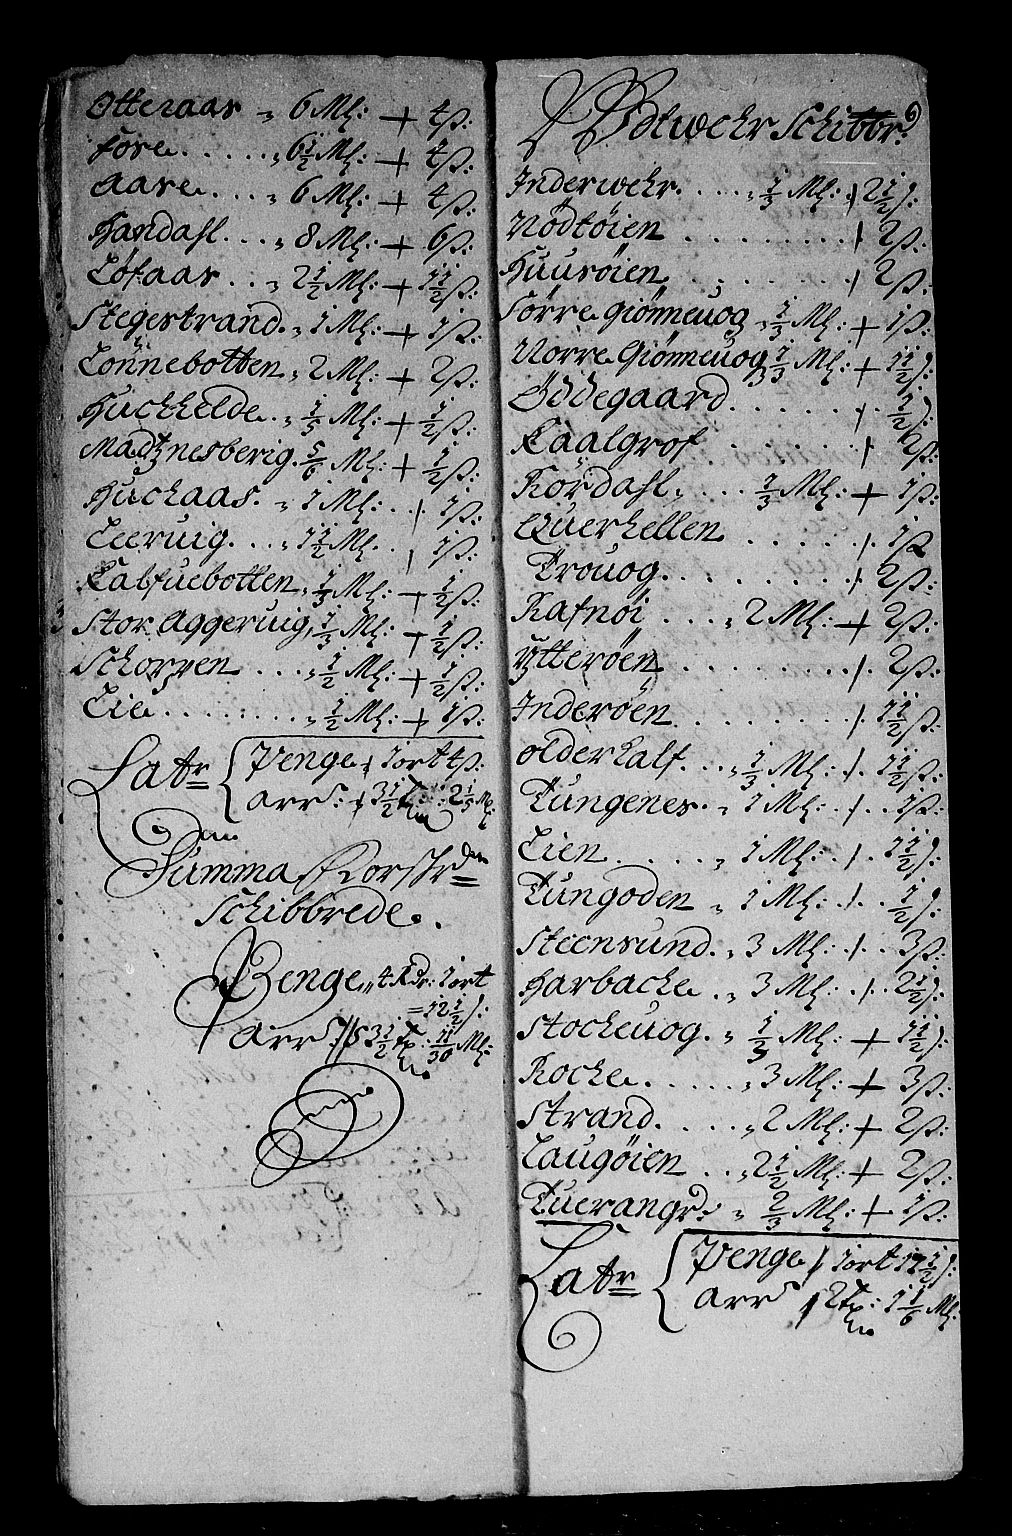 Otteraas „ 6 Ml: + 4ß:
Fore . . . . . „ 6 1/2 Ml: + 4ß:
Aare . . . . „ 6 Ml: + 4ß:
Handahl . . . „ 8 Ml: + 6ß:
Løfaas . . „ 2 1/2 Ml: + 1 1/2 ß:
Stegestrand . „ 1 Ml: + 1ß:
Lonnebotten „ 2 Ml: + 2ß:
Huckhelde . „ 1/5 Ml: + 1/2 ß:
Madtznesberig . 5/6 Ml: + 1/2 ß:
Huckaas . „ 1 Ml: . 1ß:
Leeruig . . . „ 1 1/2 Ml. , 1ß:
Kalfuebotten „ 1/3 Ml: + 1/2 ß:
Stor Aggeruig „ 1/3 Ml: + 1/2 ß:
Schorpen . . . „ 1/2 Ml: + 1/2 ß:
Lie . . . . . . . . „ 1/2 Ml: + 1ß:
Latr Penge 1 ort 4ß:
arrs: 3 1/2 : 2 1/5 Ml
Summa
Schibbrede .
Penge „ 4 Rdr: 1 ort
= 12 1/2 ß:
Arrs: 5 3 1/2 : 11/30 Ml:
9
Schibbr:
Inderwehr . . . . „ 1/3 Ml: 2 1/2 ß:
Nödtöien . . . . . . . . 2ß:
Huusöien . . . . . . . 2ß:
Sörre Giönneuog „ 1/3 Ml: + 1ß:
Norre Giönneuog 1/3 Ml: + 1 1/2 ß:
Öddegaard . . . . . . . 1/2 ß:
Kaalgrof . . . . . . 2ß:
Kördahl . . . . 1/3 Ml: + 1ß:
Querhellen . . . . . . 1ß
Trouog . . . . . . . . 2ß:
Rafnöi . . . . „ 2 Ml: + 2ß:
Ytteröen . . . . . . . . 2ß:
Inderöen . . . . . . . . 1 1/2 ß:
Olderkalf . . „ 1/3 Ml: . 1 1/2 ß:
Tungenes . „ 1 Ml: . . 1ß:
Lien . . . . . „ 1 Ml: . . 1 1/2 ß:
Tungoden „ 1 Ml: . . 1/2 ß:
Steensund „ 3 Ml: . . 3ß:
Harbacke . „ 3 Ml: . . 2 1/2 ß:
Stockeuog . „ 1/3 Ml: + 1 1/2 ß:
Rocke . . . . . „ 3 Ml: + 3ß:
Strand . . . . . „ 2 Ml: + 2ß:
Laugöien . . „ 2 1/2 Ml: + 2ß:
Tuerangr: „ 2/3 Ml: + 1ß:
Latr Penge 1 ort 17 1/2 ß:
arrs 2 : 1 1/6 Ml: